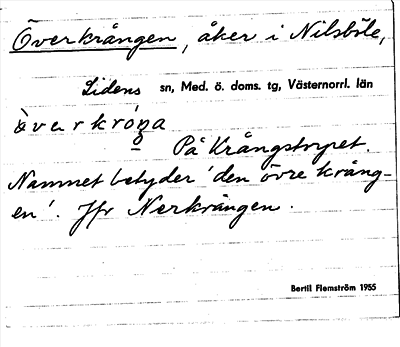 Överkrången, åker i Nilsböle,
Lidens sn, Med. ö. doms. tg, Västernorrl. län
överkróŋa
På Krångstrypet.
Namnet betyder 'den övre krång-
en'. Jfr Nerkrången.
Bertil Flemström 1955